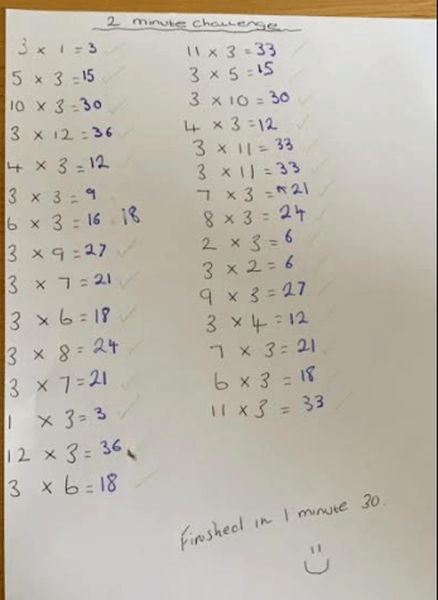 2 minute challenge
3 x 1 = 3
5 x 3 = 15
10 x 3 = 30
3 x 12 = 36
4 x 3 = 12
3 x 3 = 9
6 x 3 = 16 18
3 x 9 = 27
3 x 7 = 21
3 x 6 = 18
3 x 8 = 24
3 x 7 = 21
1 x 3 = 3
12 x 3 = 36
3 x 6 = 18
11 x 3 = 33
3 x 5 = 15
3 x 10 = 30
4 x 3 = 12
3 x 11 = 33
3 x 11 = 33
7 x 3 = 21
8 x 3 = 24
2 x 3 = 6
3 x 2 = 6
9 x 3 = 27
3 x 4 = 12
7 x 3 = 21
6 x 3 = 18
11 x 3 = 33
Finished in 1 minute 30.